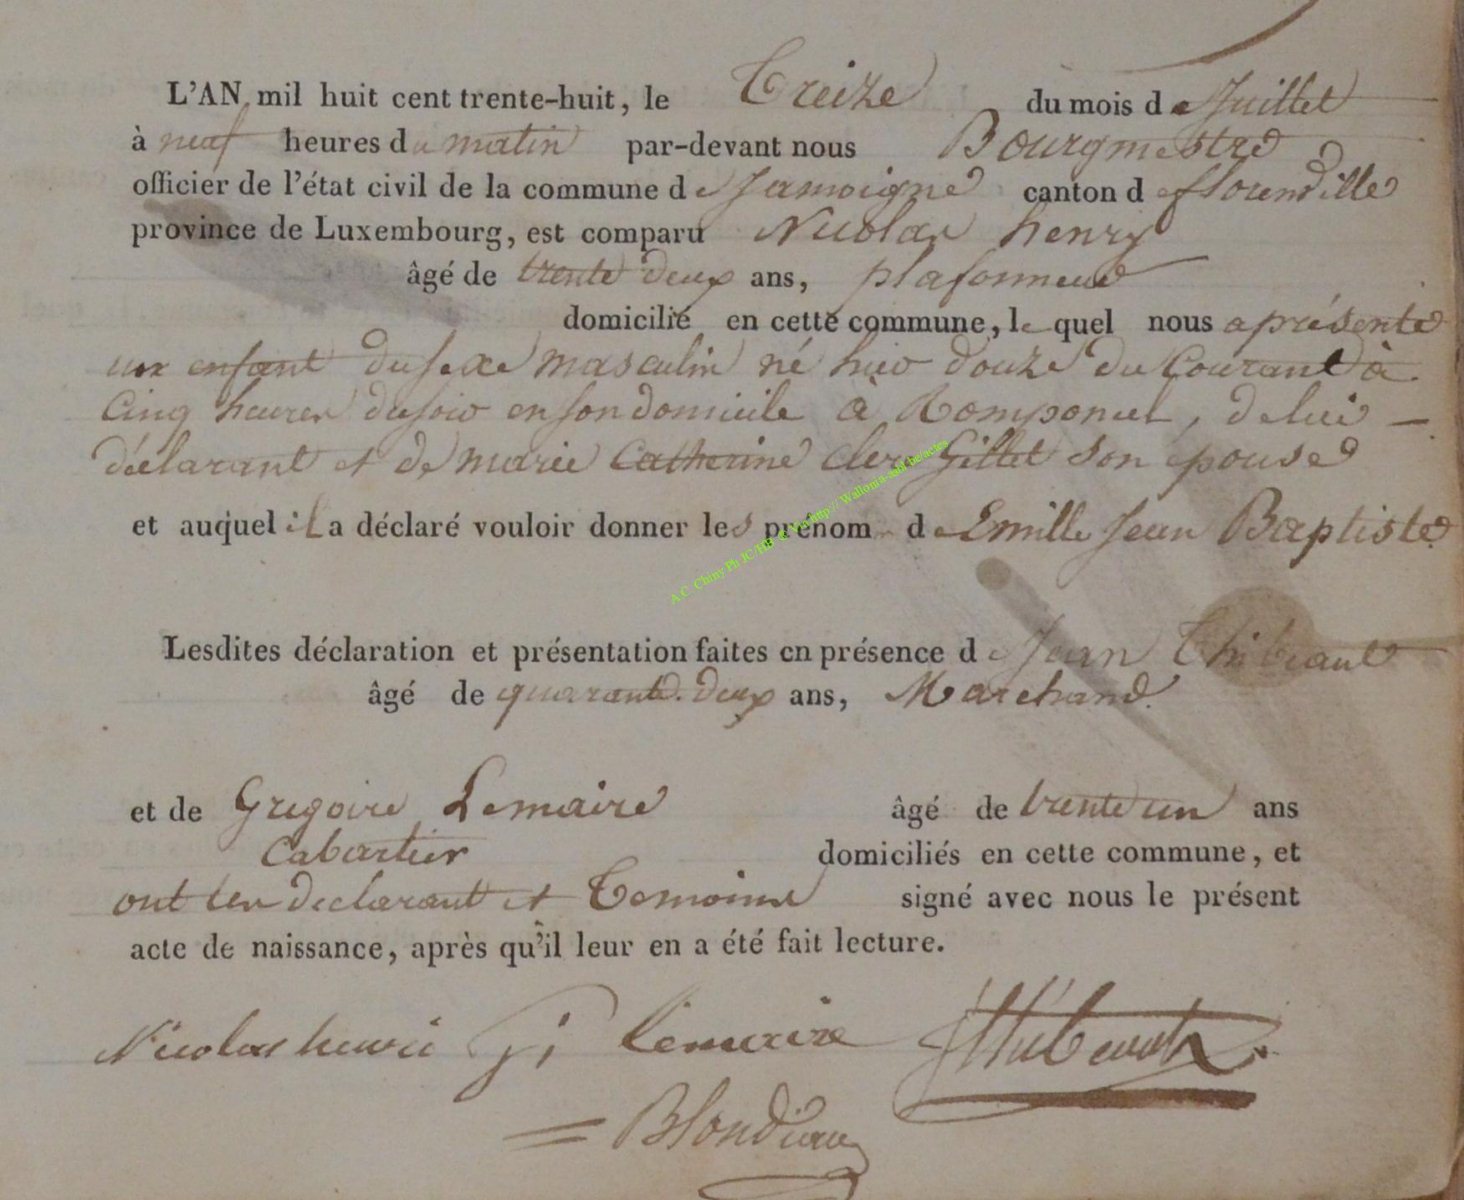 L'AN mil huit cent trente-huit, le Treize du mois de Juillet
à neuf heures du matin par-devant nous Bourgmestre
officier de l'état civil de la commune de Jamoigne canton de florenville
province de Luxembourg, est comparu Nicolas henry
âgé de trente deux ans, plafonneur
domicilié en cette commune, le quel nous a présenté
un enfant du sexe masculin né hier douze du Courant à
Cinq heures du soir en son domicile à Romponcel, de lui
déclarant et de marie Catherine Gillet son epouse
et auquel il a déclaré vouloir donner les prénom de Emille Jean Baptiste
Lesdites déclaration et présentation faites en présence de Jean Thibeaut
âgé de quarante deux ans, Marchand.
et de Gregoire Lemaire âgé de trente un ans
Cabartier domiciliés en cette commune, et
ont les declarant et Temoins signé avec nous le présent
acte de naissance, après qu'il leur en a été fait lecture.
Nicolas henri Gi lemaire JThibeault
Blondiau
A.C. Chiny Ph JC/HB © Via http:// Wallonia-asbl.be/actes